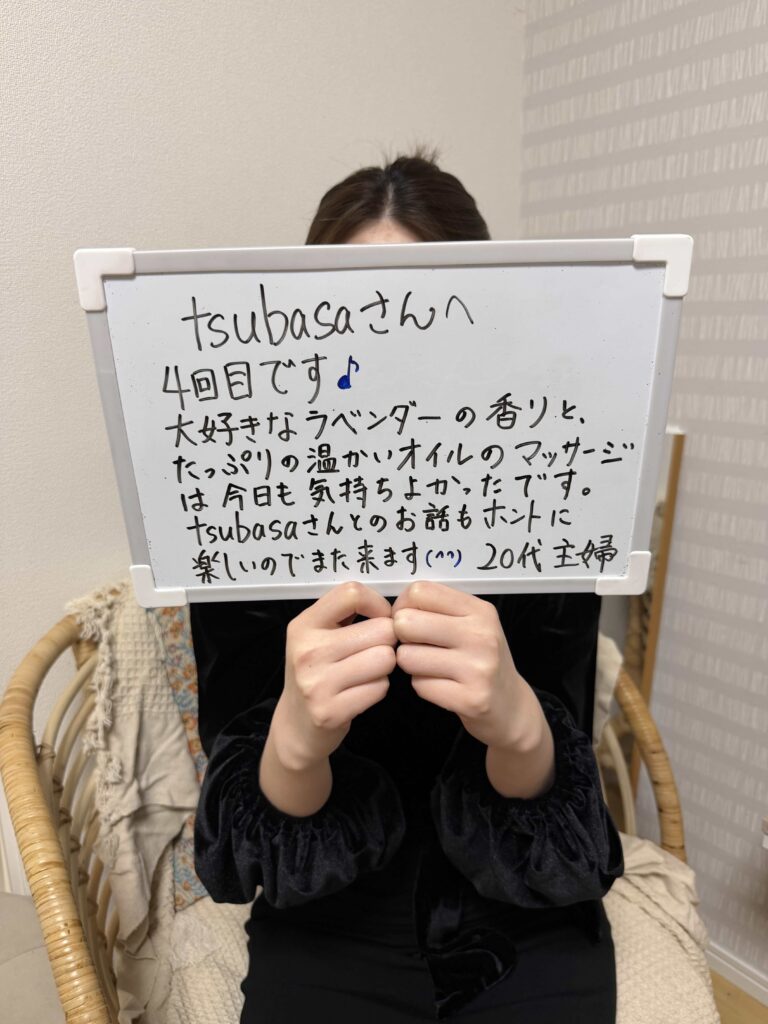 tsubasaさんへ
4回目です♪
大好きなラベンダーの香りと、
たっぷりの温かいオイルのマッサージ
は今日も気持ちよかったです。
tsubasaさんとのお話もホントに
楽しいのでまた来ます(^^) 20代主婦